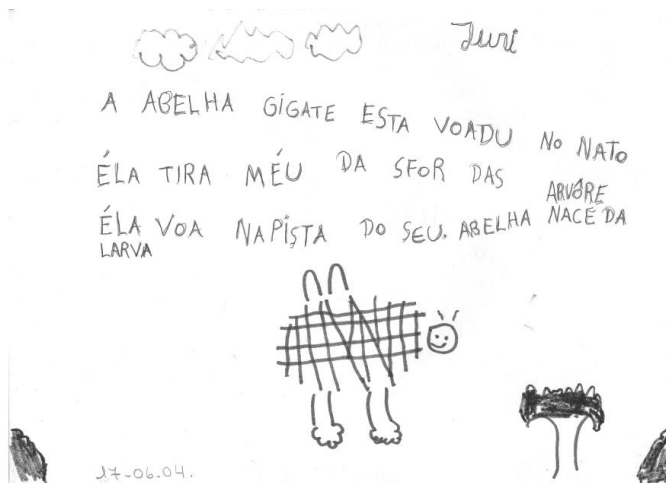 Iuri
A ABELHA GIGATE ESTA VOADU NO NATO
ÉLA TIRA MÉU DA SFOR DAS ARVÔRE
ÉLA VOA NA PISTA DO SEU. ABELHA NACE DA
LARVA
17-06-04.